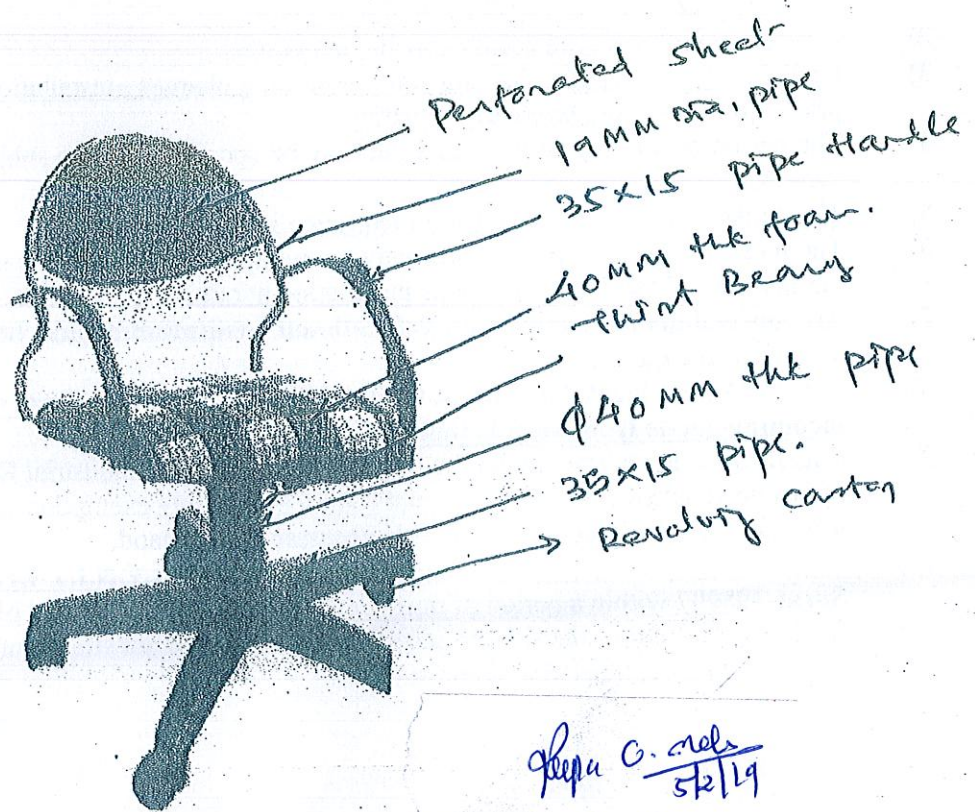 Perforated Sheet
19MM Dia. pipe
35×15 pipe Handle
40MM thk foam.
Φ40MM thk pipe
35×15 pipe.
Revolving castor
5/2/19